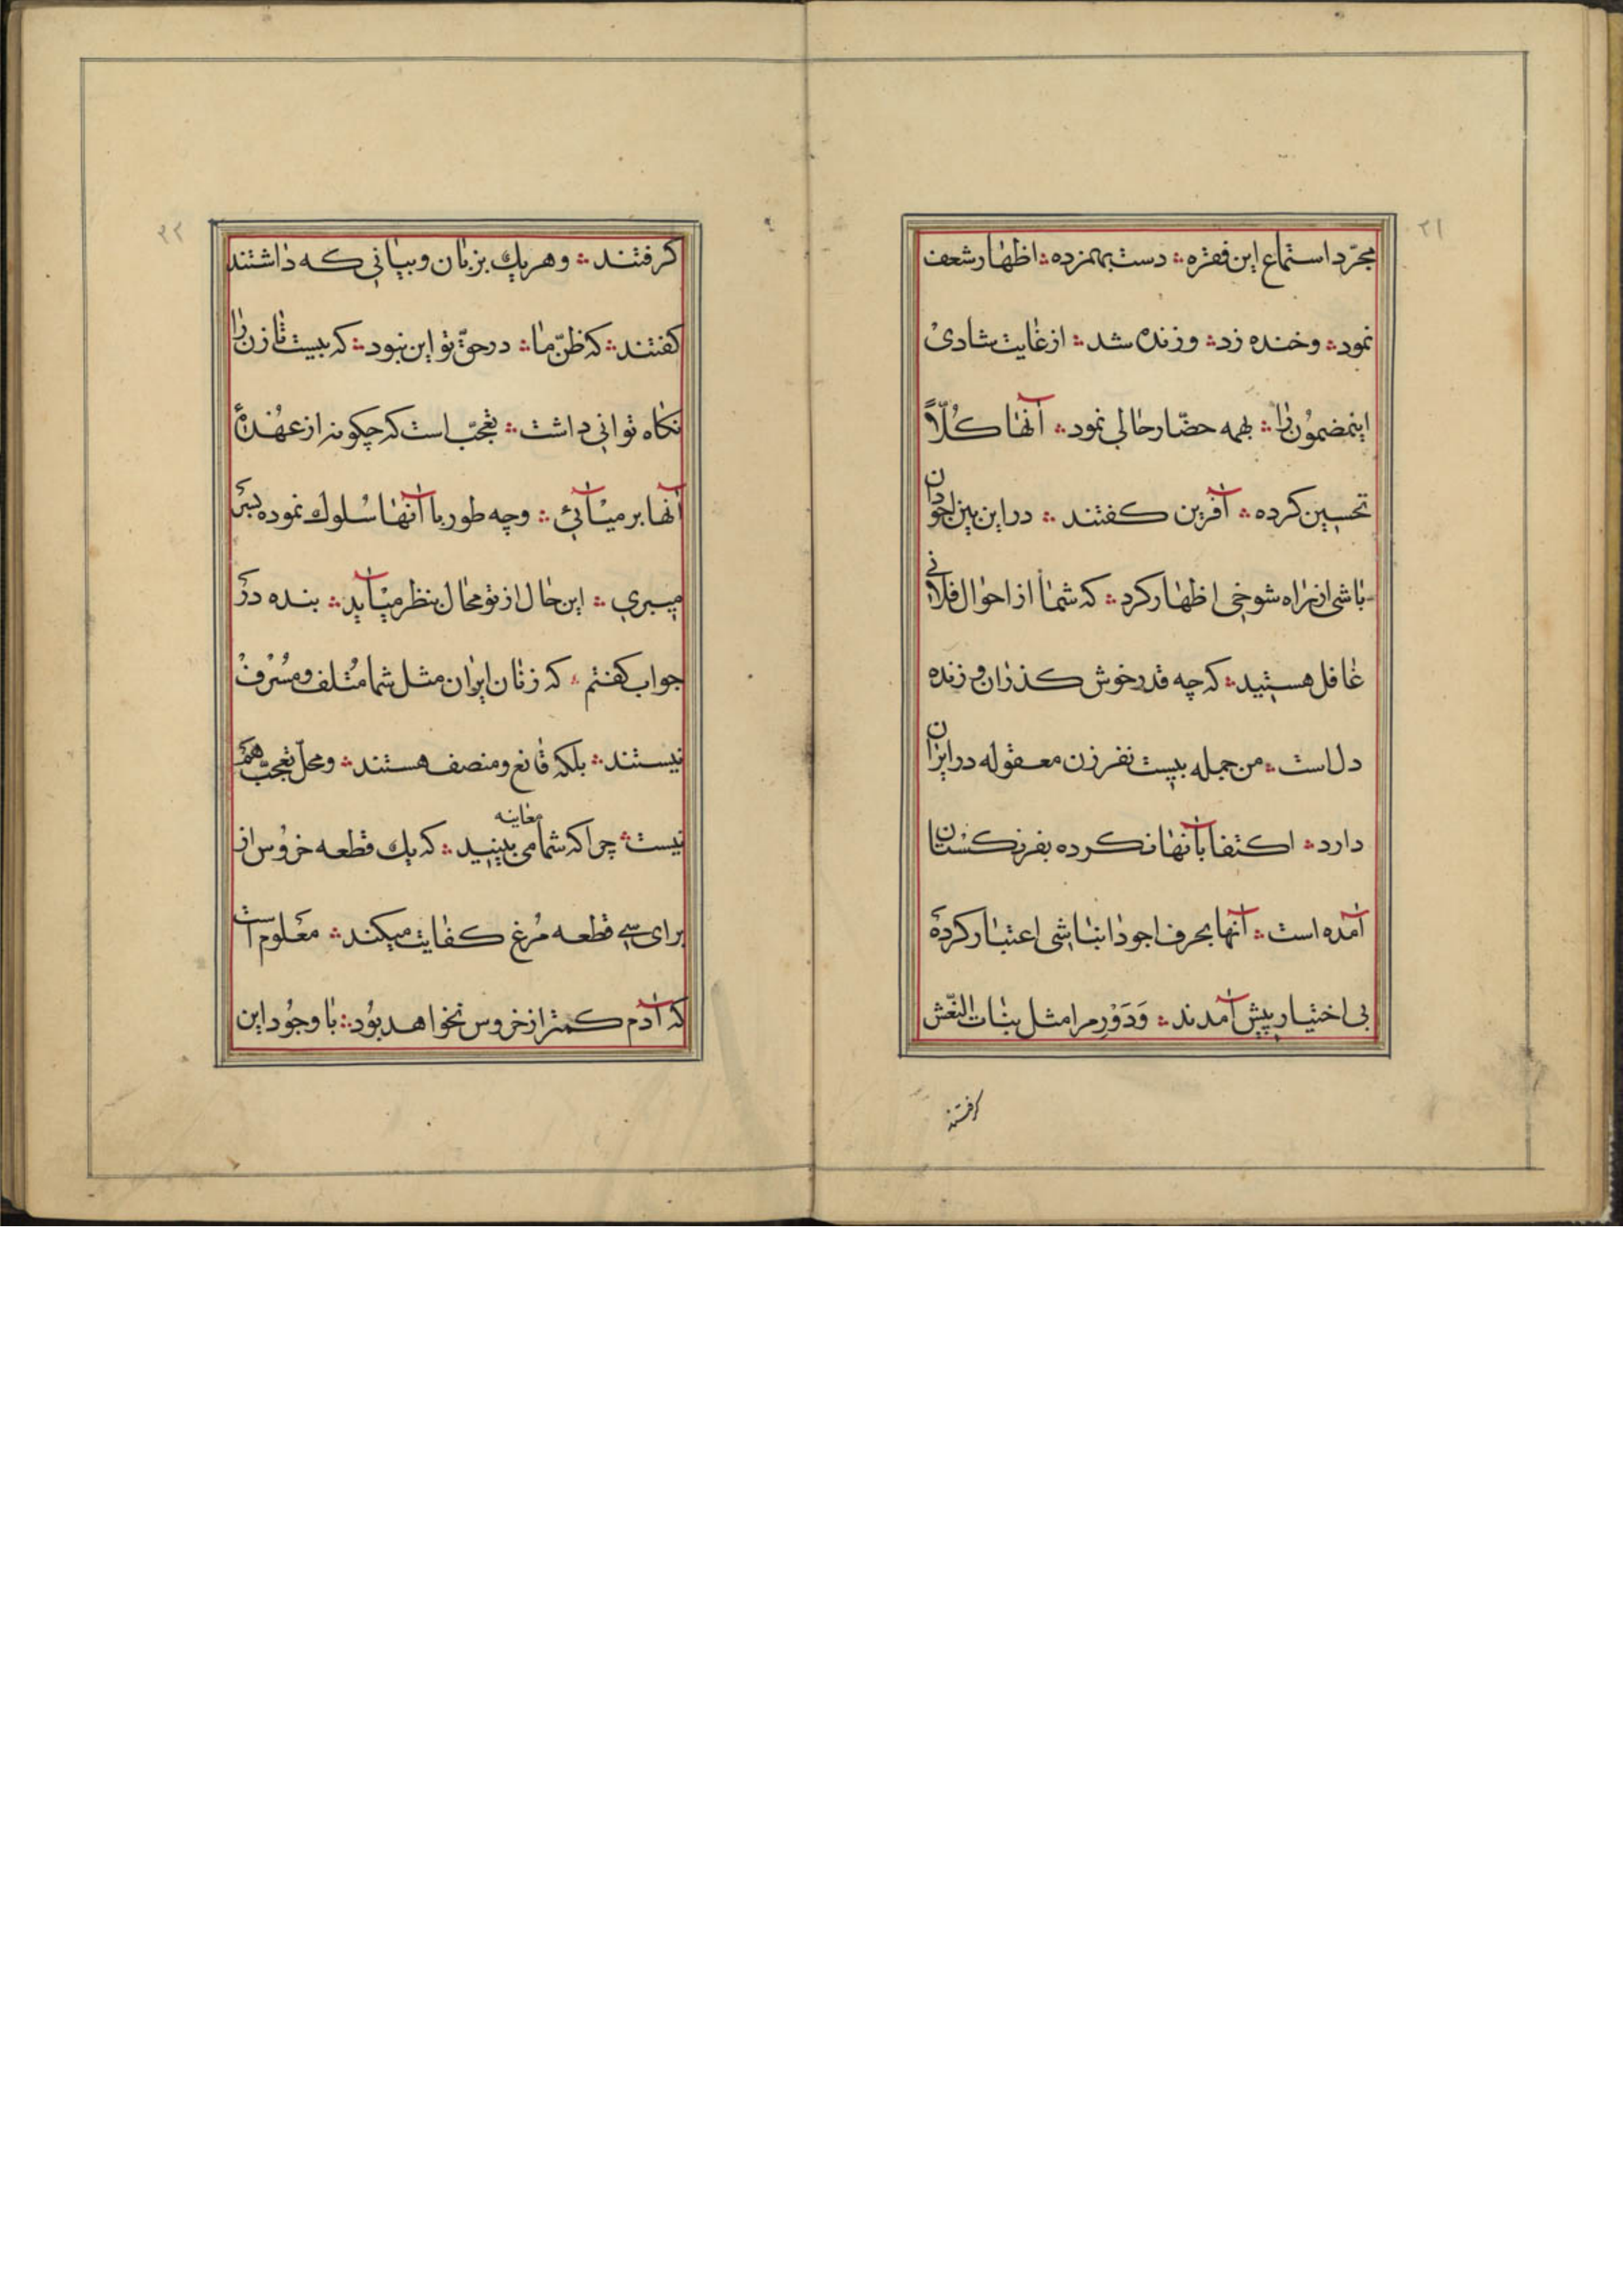 ۲۱
مجرّد استماع این فقره ؞ دست بهمزده ؞ اظهار شعف
نمود ؞ وخنده زد ؞ وزنده شد ؞ از غایت شادی
اینمضمُون را ؞ بهمه حضّار حالی نمود ؞ آنها کُلّاً
تحسین کرده ؞ آفرین کفتند ؞ در این بین اجودان
باشی از راه شوخی اظهار کرد ؞ که شما از احوال فلانی
غافل هستید ؞ که چه قدر خوش کذران و زنده
دل است ؞ من جمله بیست نفر زن معقوله در ایران
دارد ؞ اکتفا بآنها نکرده بفرنکستان
آمده است ؞ آنها بحرف اجودانباشی اعتبار کرده
بی اختیار پیش آمدند ؞ وَدَوْرِ مرا مثل بنات النّعش
کرفتند
۲۲
کرفتند ؞ وهریك بزبان وبیانی که داشتند
کفتند ؞ که ظنّ ما ؞ در حقّ تو این نبود ؞ که بیست تا زن را
نکاه توانی داشت ؞ تعجّب است که چکونه از عهدهٔ
آنها بر میآئی ؞ وچه طور با آنها سُلوك نموده بسر
میبری ؞ این حال از تو محال بنظر میآید ؞ بنده در
جواب کفتم ؞ که زنان ایران مثل شما مُتلف ومُسْرِف
نیستند ؞ بلکه قانع ومنصف هستند ؞ ومحلّ تعجّب هم
نیست ؞ چرا که شما معاینه می بینید ؞ که یك قطعه خرُوس از
برای سی قطعه مُرغ کفایت میکند ؞ معلوم است
که آدم کمتر از خروس نخواهد بُود ؞ با وجُود این